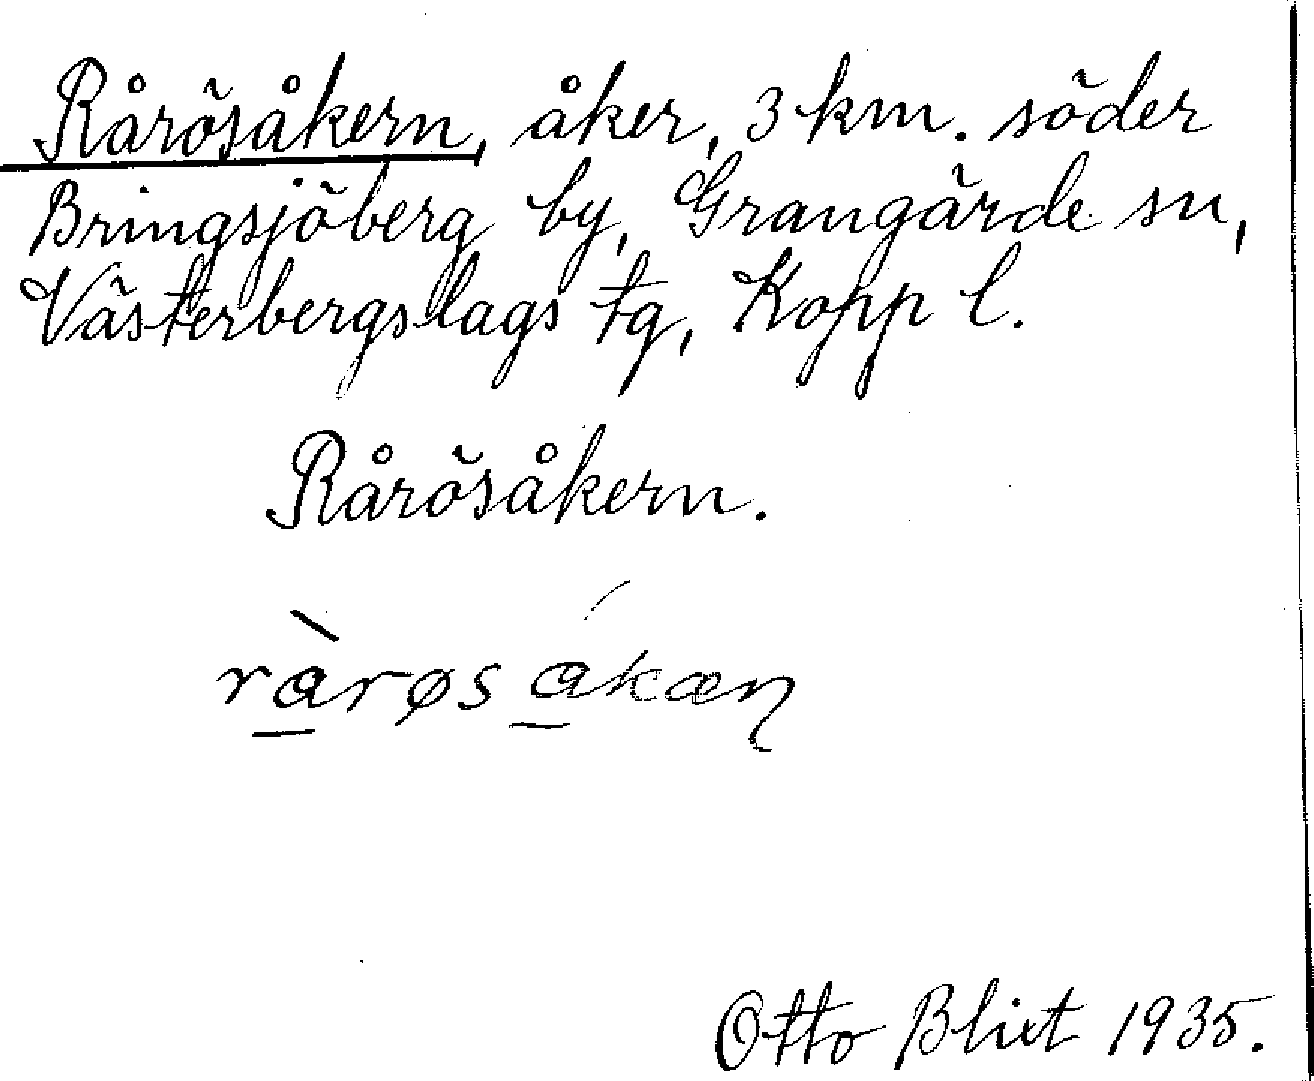 Rårösåkern, åker, 3 km. söder
Bringsjöberg by, Grangärde sn,
Västerbergslags tg, Kopp l.
Rårösåkern.
rà̲røs á̲kæɳ
Otto Blixt 1935.